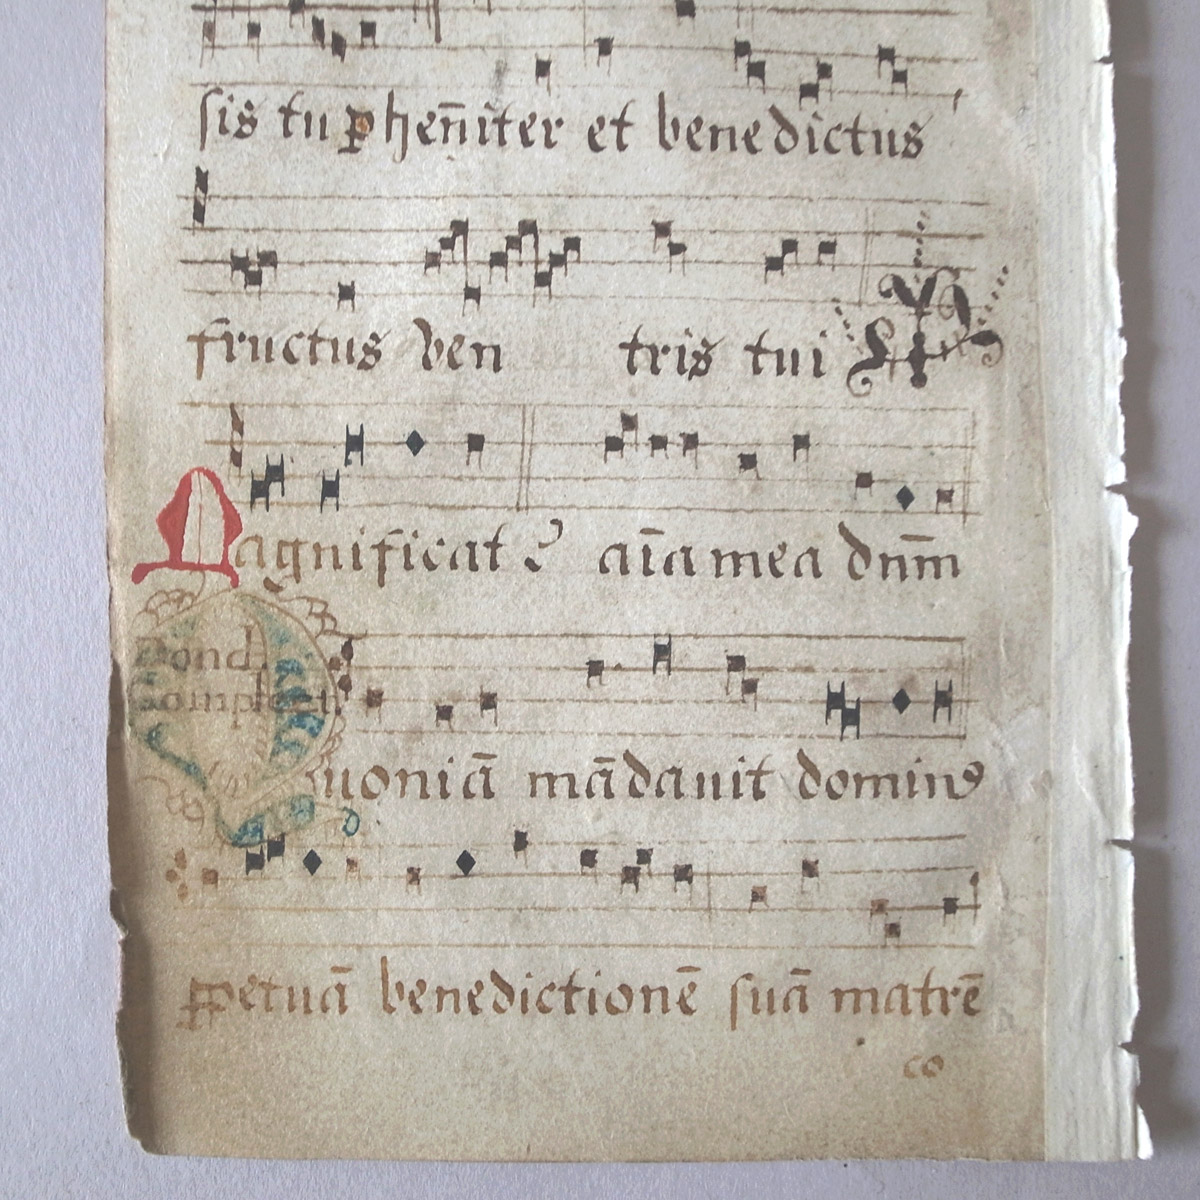 sis tu p heñiter et benedictus
fructus ven tris tui
Magnificat aīa mea dnm̄
Pond
Complet
Quoniā mādauit dominꝰ
ꝑpetuā benedictionē suā matrē
co